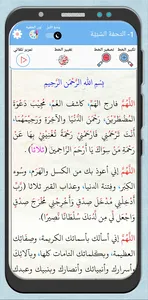 1- التحفة السَّنِيَّة
تكبير الخط
تصغير الخط
تغيير الخط
تمرير تلقائي
بِسْمِ اللَّهِ الرَّحْمَنِ الرَّحِيمِ
اللَّهُمَّ فارج الهَمِّ، وكاشف الغمّ، مُجِيبَ دَعْوَةِ
المُضْطَرِّينَ، رَحمَنَ الدُّنْيَا وَالْآخِرَةِ وَرَحِيمَهُمَا،
أَنْتَ تَرْحَمُنِي، فَارْحَمْنِي رَحْمَةً تُغْنِينِي بِهَا عَنْ
رَحْمَةِ مَنْ سِوَاكَ يَا أَرْحَمَ الرَّاحِمِينَ (ثلاثًا)
اللَّهُمَّ إني أعوذ بك من الكسل والهَرَم، وسوء
الكِبَر، وفتنة الدنيا، وعذاب القبر (ثلاثا) رَبِّ
أَدْخِلْنِي مُدْخَلَ صِدْقٍ وَأَخْرِجْنِي مُخْرَجَ صِدْقٍ
وَاجْعَل لِي مِن لَّدُنكَ سُلْطَانًا نَّصِيرًا (ثلاثًا)
اللَّهُمَّ إني أسألك بأسمائك الكريمة، وصفاتك
العظيمة، وآياتك الكريمة، وكلماتك التامة،
وملائكتك وأنبيائك وأنصارك وبنبيك وعبدك